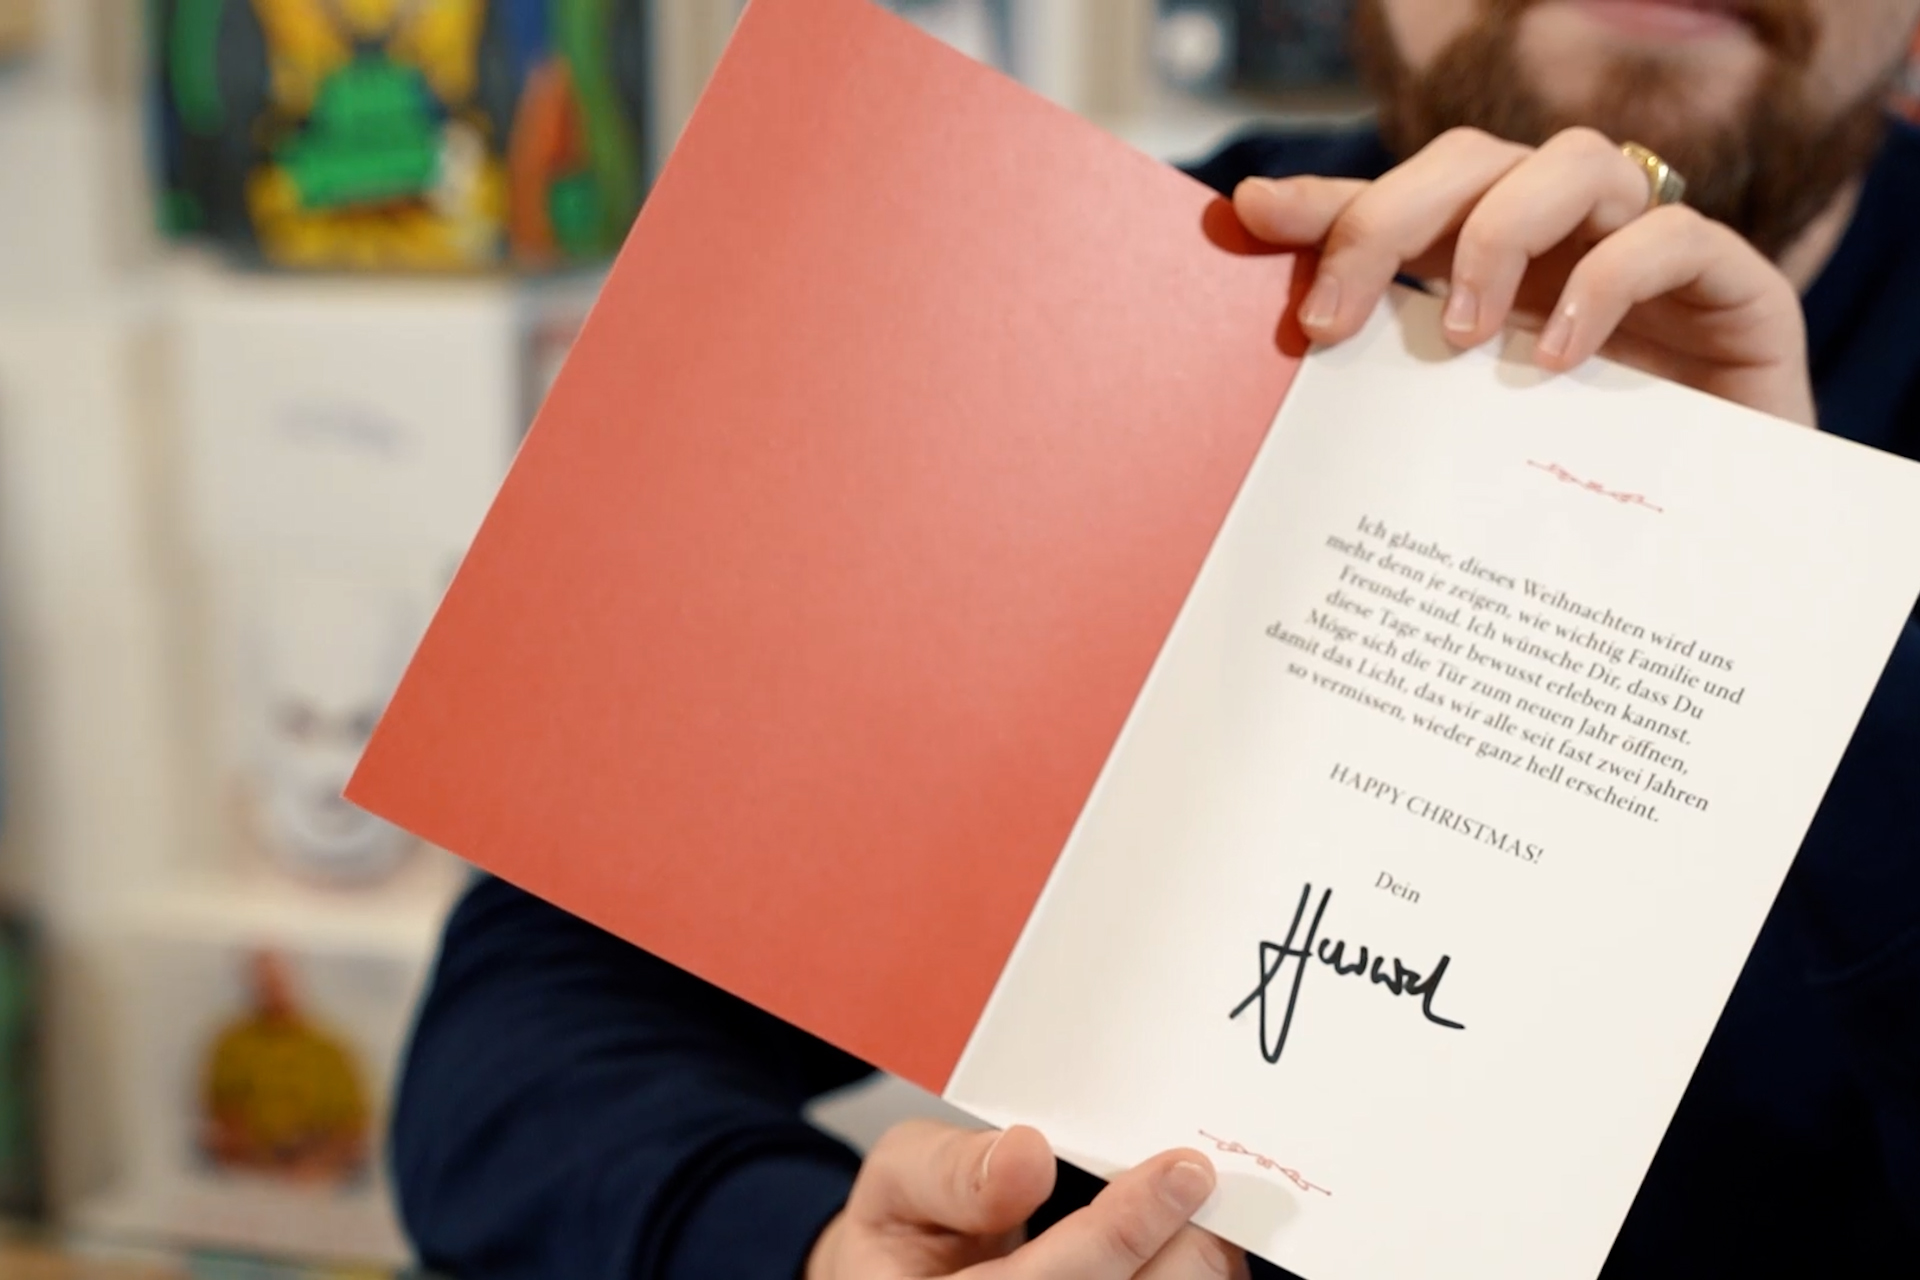 Ich glaube, dieses Weihnachten wird uns
mehr denn je zeigen, wie wichtig Familie und
Freunde sind. Ich wünsche Dir, dass Du
diese Tage sehr bewusst erleben kannst.
Möge sich die Tür zum neuen Jahr öffnen,
damit das Licht, das wir alle seit fast zwei Jahren
so vermissen, wieder ganz hell erscheint.
HAPPY CHRISTMAS!
Dein